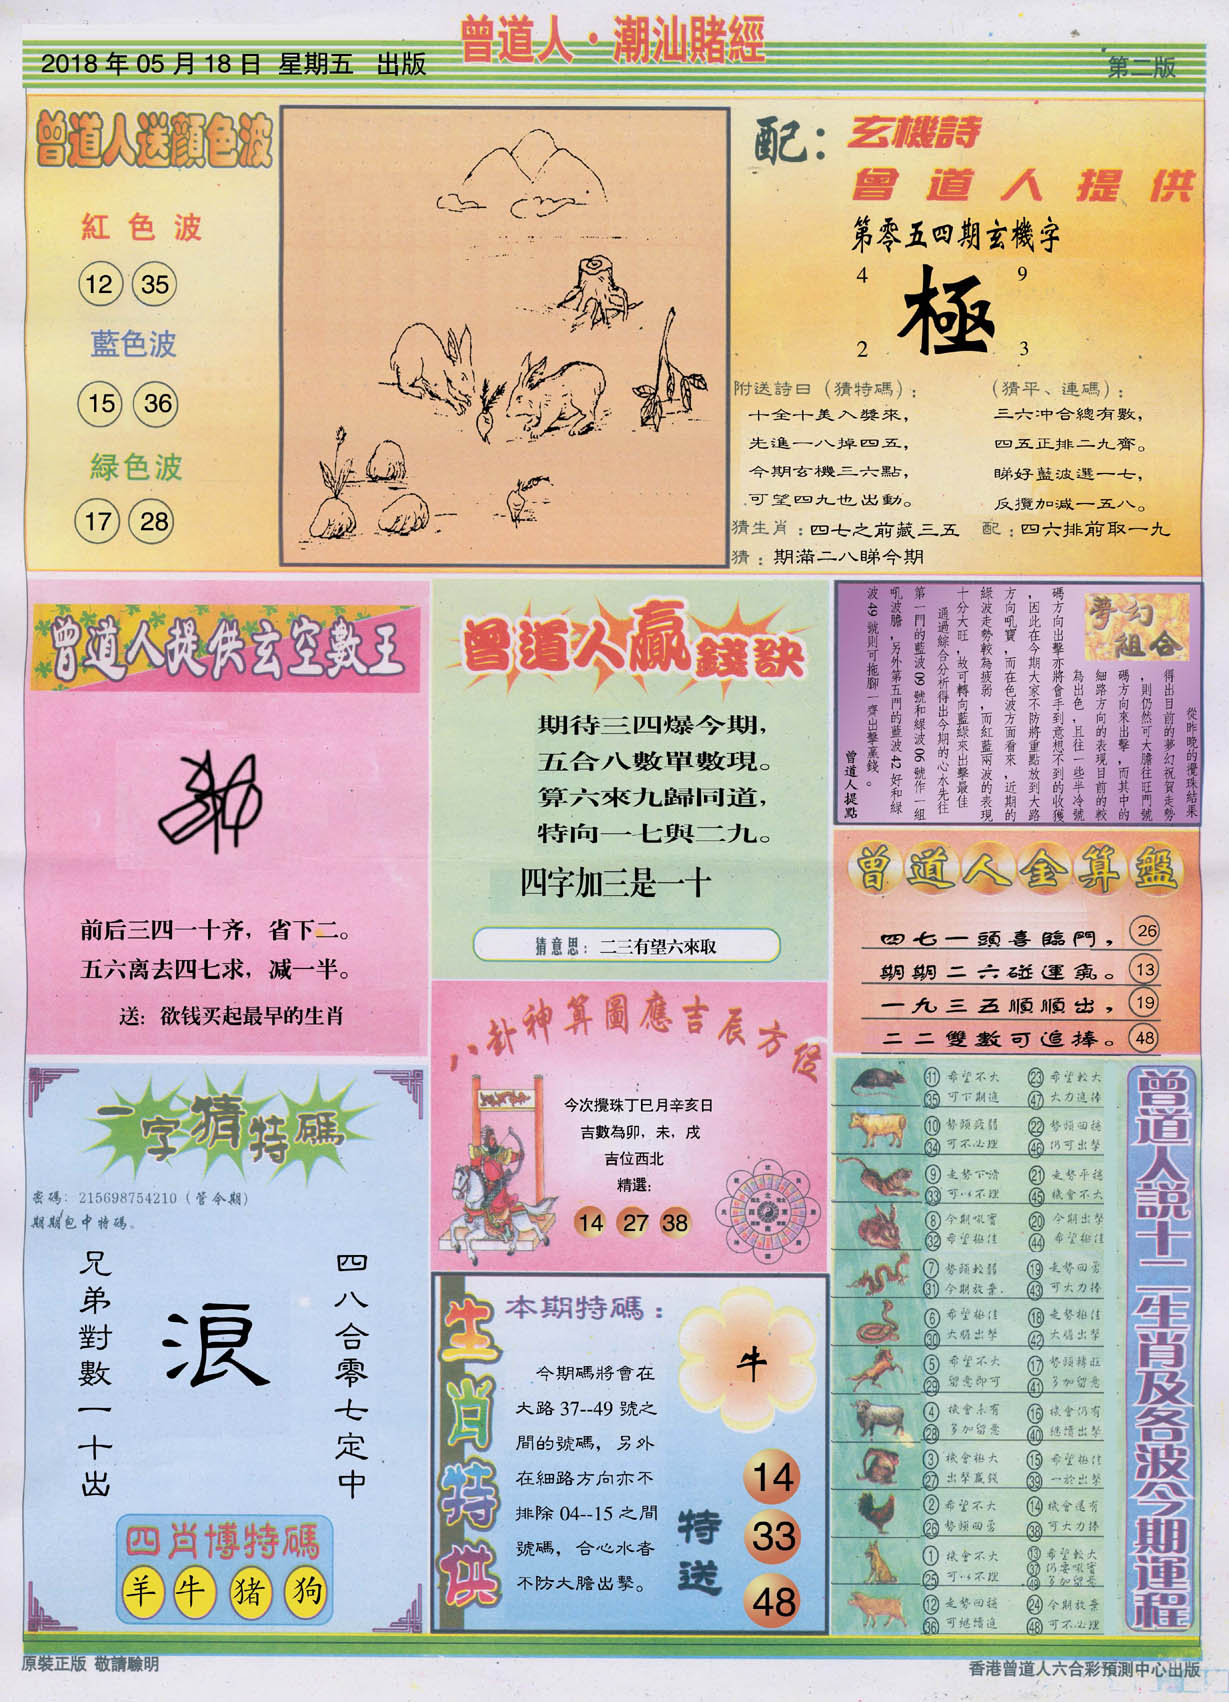 曾道人·潮汕賭經
2018年05月18日 星期五 出版
第二版
曾道人送顏色波
紅色波
12 35
藍色波
15 36
緑色波
17 28
配：
玄機詩
曾道人提供
第零五四期玄機字
4 9
極
2 3
附送詩日（猜特碼）：
十全十美入獎來，
先進一八掉四五，
今期玄機三六點，
可望四九也出動。
（猜平、連碼）：
三六冲合總有數，
四五正排二九齊。
睇好藍波選一七，
反攬加減一五八。
猜生肖：四七之前藏三五
配：四六排前取一九
猜：期滿二八睇今期
曾道人提供玄空數王
前后三四一十齐，省下二。
五六离去四七求，减一半。
送：欲钱买起最早的生肖
曾道人贏錢訣
期待三四爆今期，
五合八數單數現。
算六來九歸同道，
特向一七與二九。
四字加三是一十
猜意思：二三有望六來取
夢幻組合
從昨晚的攪珠結果
得出目前的夢幻祝賀走勢
，則仍然可大膽往旺門號
碼方向來出擊，而其中的
細路方向的表現目前的較
為出色，且往一些半冷號
碼方向出擊亦將會手到意想不到的收獲
，因此在今期大家不防將重點放到大路
方向吼寶，而在色波方面看來，近期的
綠波走勢較為疲弱，而紅藍兩波的表現
十分大旺，故可轉向藍綠來出擊最佳
通過綜合分析得出今期的心水先往
第一門的藍波09號和綠波06號作一組
吼波膽，另外第五門的藍波42好和綠
波49號則可拖腳一齊出擊贏錢。
曾道人提點
曾道人金算盤
四七一頭喜臨門， 26
期期二六碰運氣。 13
一九三五順順出， 19
二二雙數可追捧。 48
一字猜特碼
密碼：215698754210（管今期）
期期包中特碼。
兄弟對數一十出
浪
四八合零七定中
四肖博特碼
羊 牛 猪 狗
八卦神算圖應吉辰方位
今次攪珠丁巳月辛亥日
吉數為卯，未，戌
吉位西北
精選：
14 27 38
生肖特供
本期特碼：
牛
今期碼將會在
大路37--49號之
間的號碼，另外
在細路方向亦不
排除04--15之間
號碼，合心水者
不防大膽出擊。
特送
14
33
48
曾道人説十二生肖及各波今期運程
11 希望不大 23 希望較大
35 可下期追 47 大力追捧
10 勢頭疲弱 22 勢頭回穩
34 可不必理 46 仍可出擊
9 走勢下滑 21 走勢平穩
33 可以不理 45 機會不大
8 今期吼寶 20 今期出擊
32 希望極佳 44 希望極佳
7 勢頭較弱 19 走勢回勇
31 今期放棄 43 可大力捧
6 希望極佳 18 走勢極佳
30 大膽出擊 42 大膽出擊
5 希望不大 17 勢頭轉旺
29 留意即可 41 多加留意
4 機會未有 16 機會仍有
28 多加留意 40 繼續出擊
3 機會極大 15 希望極佳
27 出擊贏錢 39 一於出擊
2 希望不大 14 機會還有
26 勢頭回勇 38 可大力捧
1 機會不大 13 希望較大
25 可以不理 37 仍要吼實
49 多加留意
12 走勢回穩 24 今期放棄
36 可繼續追 48 可不必理
原裝正版 敬請驗明
香港曾道人六合彩預測中心出版